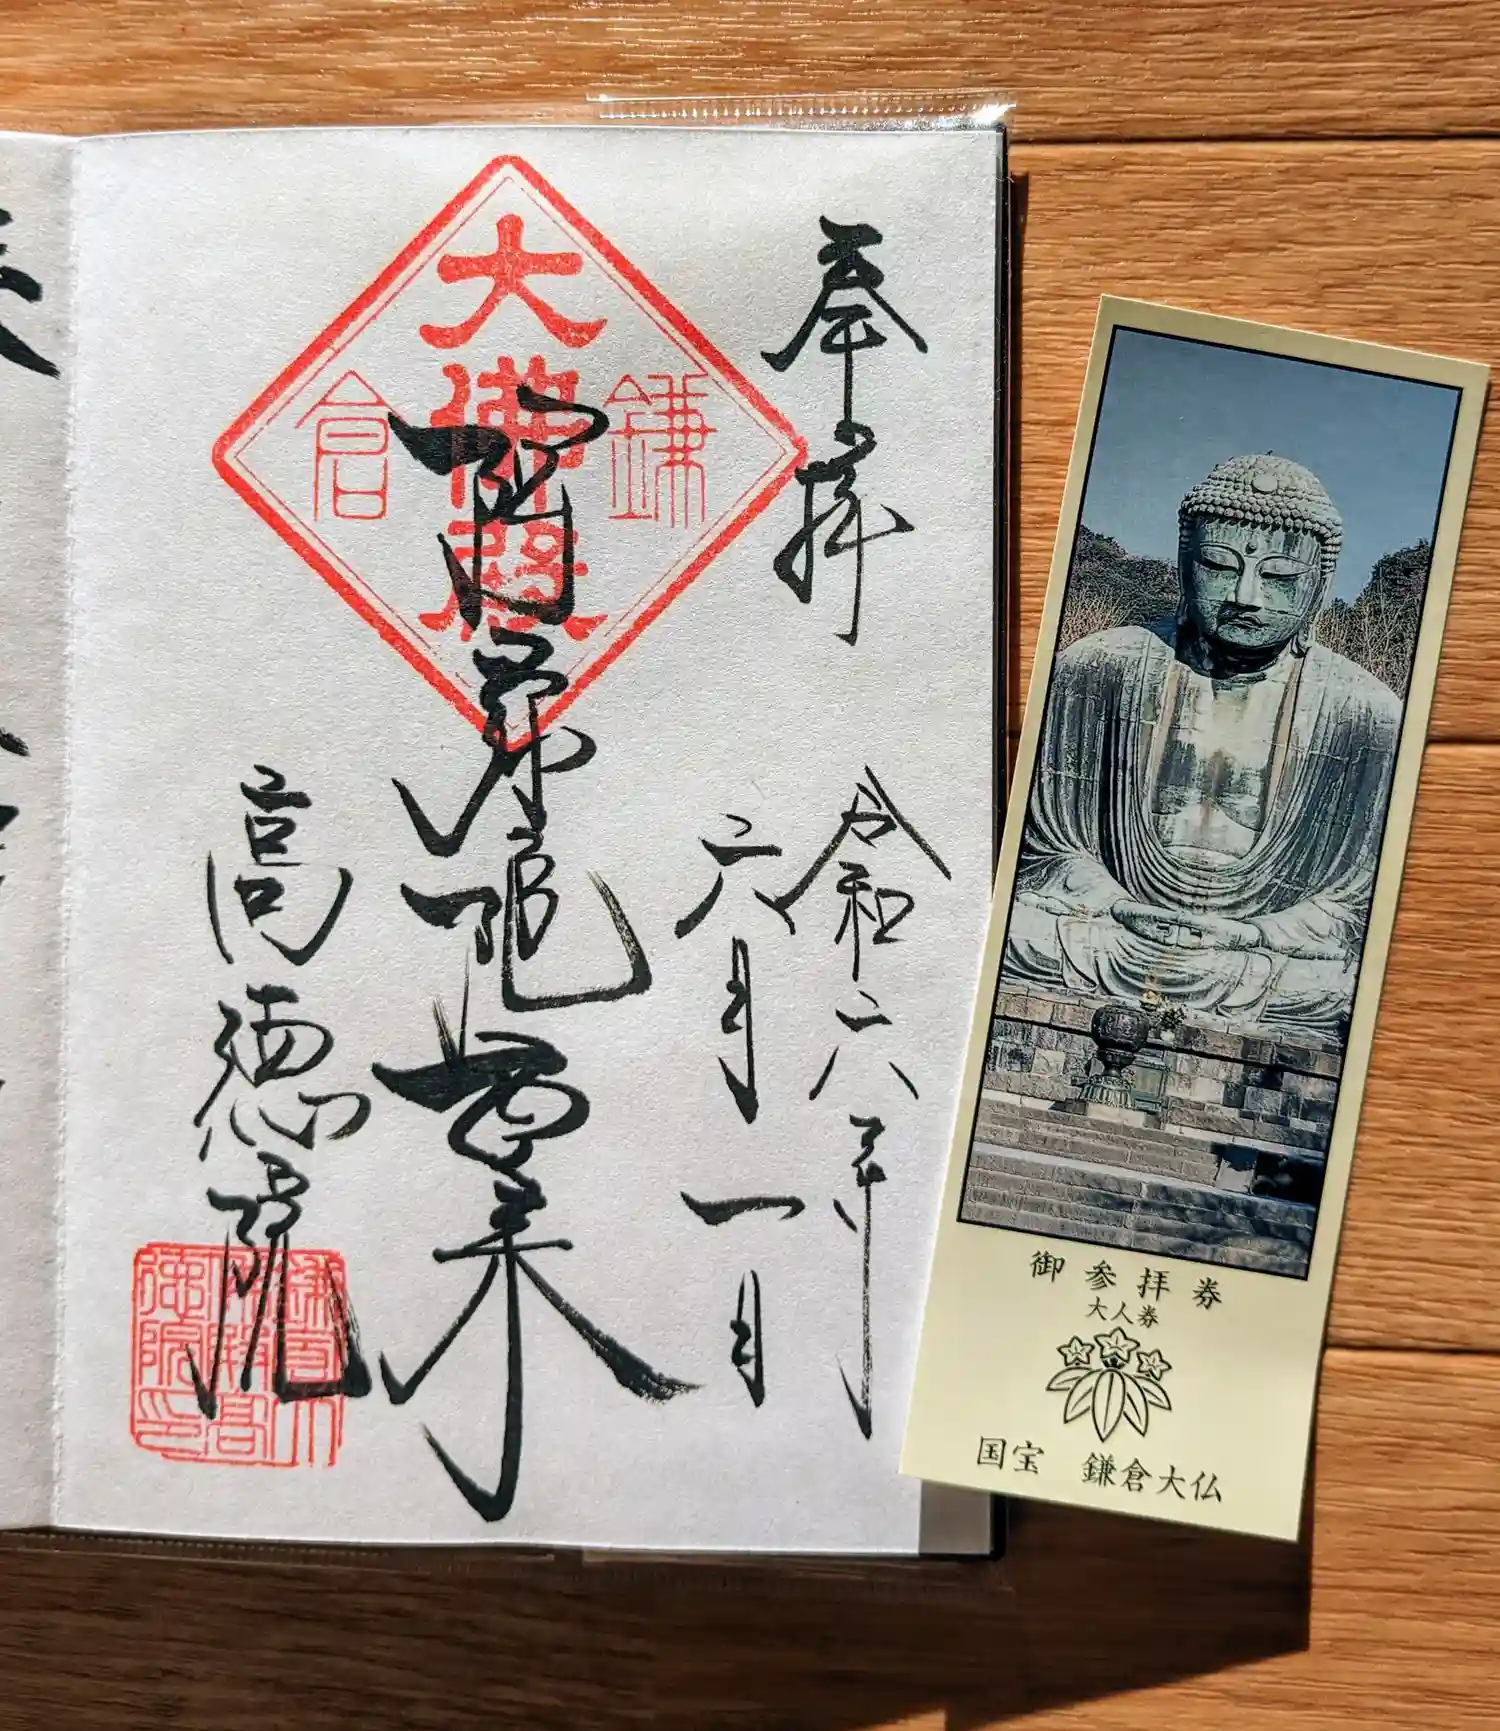 奉拝
令和六年
六月一日
大佛殿
鎌
倉
阿弥陀如来
高徳院
御参拝券
大人券
国宝 鎌倉大仏